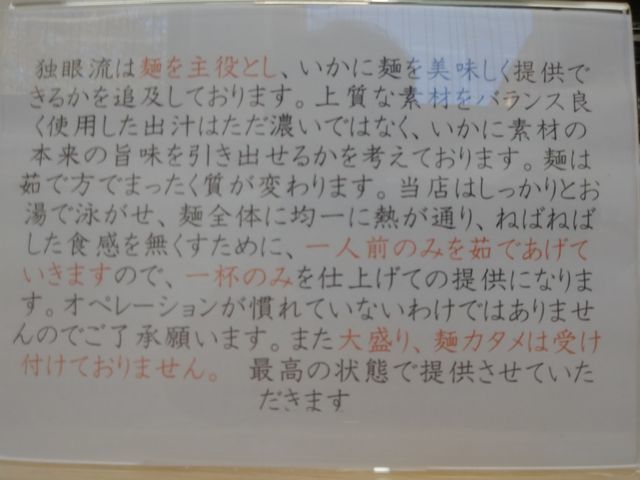 独眼流は麺を主役とし、いかに麺を美味しく提供で
きるかを追及しております。上質な素材をバランス良
く使用した出汁はただ濃いではなく、いかに素材の
本来の旨味を引き出せるかを考えております。麺は
茹で方でまったく質が変わります。当店はしっかりとお
湯で泳がせ、麺全体に均一に熱が通り、ねばねば
した食感を無くすために、一人前のみを茹であげて
いきますので、一杯のみを仕上げての提供になりま
す。オペレーションが慣れていないわけではありませ
んのでご了承願います。また大盛り、麺カタメは受け
付けておりません。　最高の状態で提供させていた
だきます